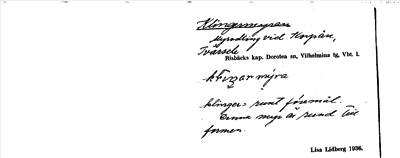 Klingermyran
Myrodling vid Korpån,
Tvärsele
Risbäcks kap. Dorotea sn, Vilhelmina tg, Vbt. l.
klinger = runt föremål.
Denna myr är rund till
formen.
Lisa Lidberg 1936.